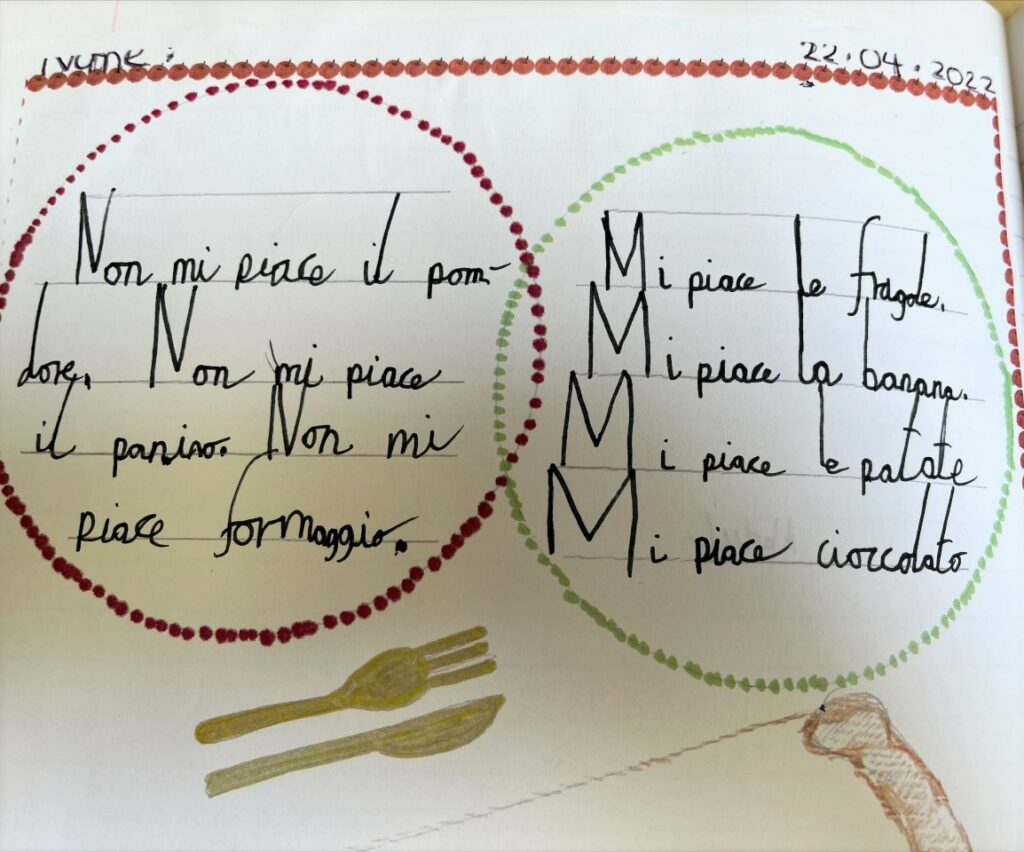 22.04.2022
Non mi piace il pom-
dore. Non mi piace
il panino. Non mi
piace formaggio.
Mi piace le fragole.
Mi piace la banana.
Mi piace le patate
Mi piace cioccolato